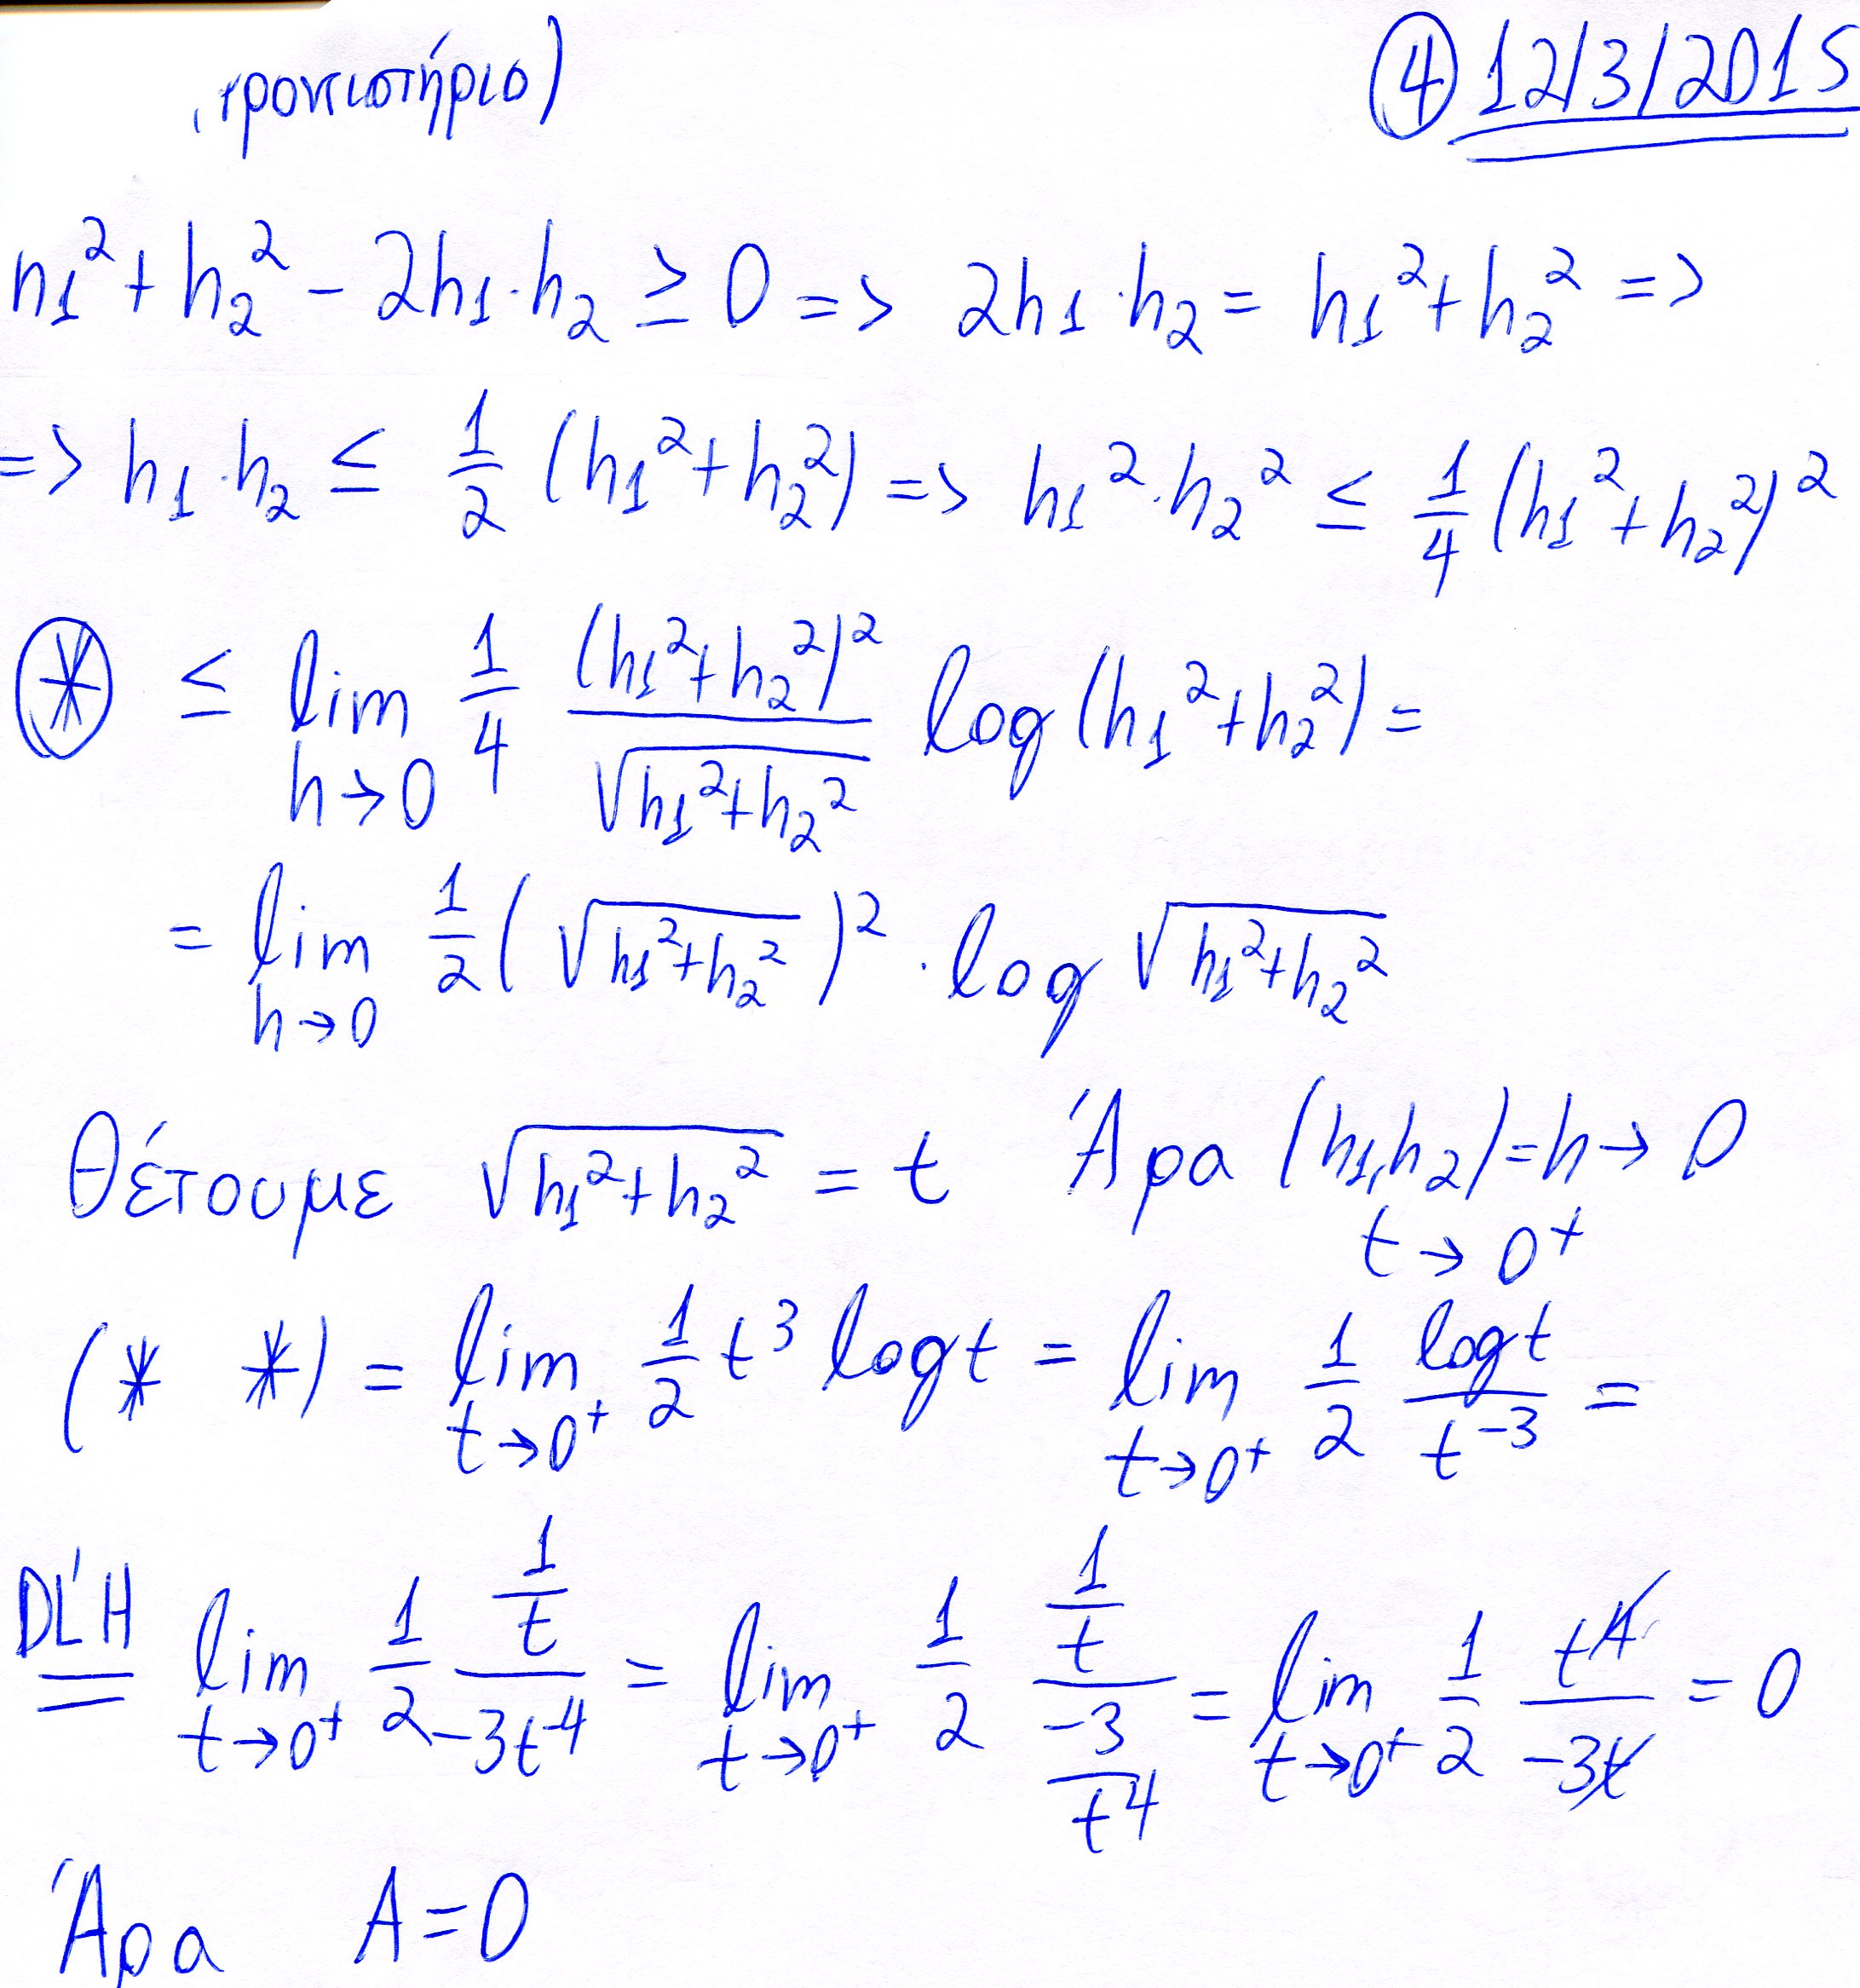 φροντιστήριο) ④ 12/3/2015
h₁² + h₂² - 2h₁·h₂ ≥ 0 => 2h₁·h₂ = h₁² + h₂² =>
=> h₁·h₂ ≤ 1/2 (h₁² + h₂²) => h₁²·h₂² ≤ 1/4 (h₁² + h₂²)²
(*) ≤ lim_{h→0} 1/4 (h₁² + h₂²)² / √(h₁² + h₂²) log(h₁² + h₂²) =
= lim_{h→0} 1/2 (√(h₁² + h₂²))² · log √(h₁² + h₂²)
Θέτουμε √(h₁² + h₂²) = t Άρα (h₁,h₂) = h → 0
t → 0⁺
(* *) = lim_{t→0⁺} 1/2 t³ log t = lim_{t→0⁺} 1/2 (log t)/(t⁻³) =
DL'H = lim_{t→0⁺} 1/2 (1/t)/(-3t⁻⁴) = lim_{t→0⁺} 1/2 (1/t)/(-3/t⁴) = lim_{t→0⁺} 1/2 t⁴/(-3t) = 0
Άρα A = 0